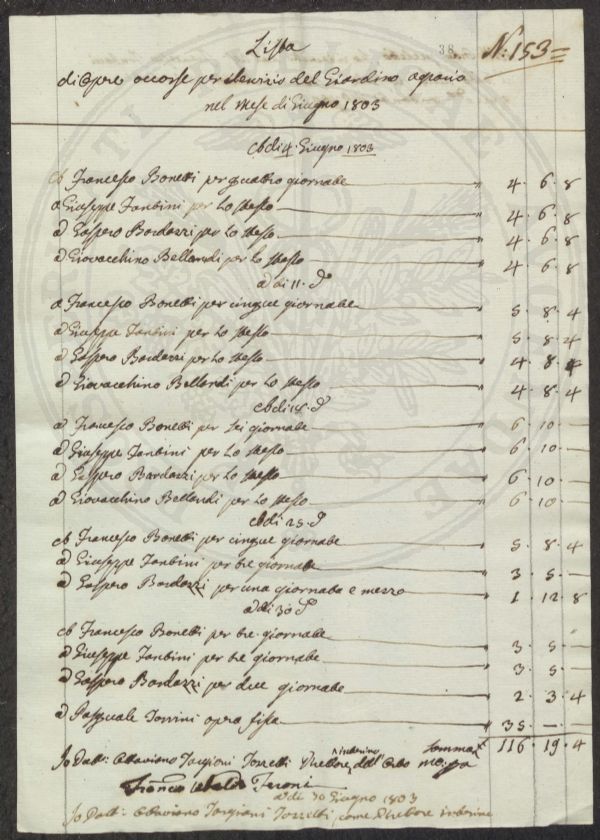 38.
N: 153=
Lista
di Opre occorse per servizio del Giardino agrario
nel Mese di Giugno 1803
A di 4. Giugno 1803
A Francesco Bonetti per quattro giornate " 4 . 6 . 8
a Giuseppe Tanbini per Lo stesso " 4 . 6 . 8
a Gaspero Bardazzi per Lo stesso " 4 . 6 . 8
a Giovacchino Bellandi per Lo stesso " 4 . 6 . 8
a di 11. d°
a Francesco Bonetti per cinque giornate " 5 . 8 . 4
a Giuseppe Tanbini per Lo stesso " 5 . 8 . 4
a Gaspero Bardazzi per Lo stesso " 4 . 8 . 4
a Giovacchino Bellandi per Lo stesso " 4 . 8 . 4
A di 18. d°
a Francesco Bonetti per sei giornate " 6 . 10 . —
a Giuseppe Tanbini per Lo stesso " 6 . 10 . —
a Gaspero Bardazzi per Lo stesso " 6 . 10 . —
a Giovacchino Bellandi per Lo stesso " 6 . 10 . —
A di 25. d°
A Francesco Bonetti per cinque giornate " 5 . 8 . 4
a Giuseppe Tanbini per tre giornate " 3 . 5 . —
a Gaspero Bardazzi per una giornata e mezzo " 1 . 12 . 8
a di 30 d°
A Francesco Bonetti per tre giornate " 3 . 5 . —
a Giuseppe Tanbini per tre giornate " 3 . 5 . —
a Gaspero Bardazzi per due giornate " 2 . 3 . 4
a Pasquale Torrini opera fissa " 35 . — . —
Somma 116 . 19 . 4
Io Dott: Ottaviano Targioni Tozzetti Direttore interino dell'Orto
Feroni
a di 30 Giugno 1803
Io Dott: Ottaviano Targioni Tozzetti, come Direttore interino